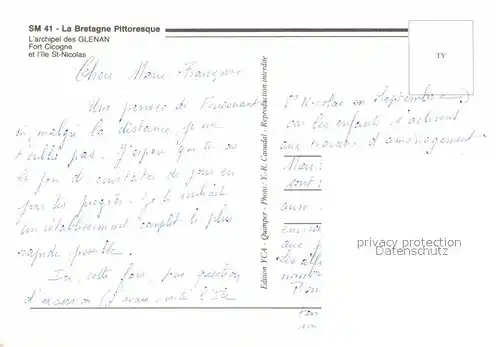 SM 41 - La Bretagne Pittoresque
L'archipel des GLENAN
Fort Cicogne
et l'île St-Nicolas
TY
Chère Marie-Françoise
Une pensée du
malgré la distance, je ne
t'oublie pas. J'espère que tu as
la joie de constater de jour en
jour les progrès. Je te souhaite
un rétablissement complet le plus
rapide possible.
Ici, cette fois, pas question
d'excursion (j'avais visité l'Ile
St Nicolas en Septembre)
car les enfants s'activent
aux travaux d'aménagement.
Mais
sont
aussi
que
Edition YCA - Quimper - Photo : Y.-R. Caoudal - Reproduction interdite
privacy protection
Datenschutz